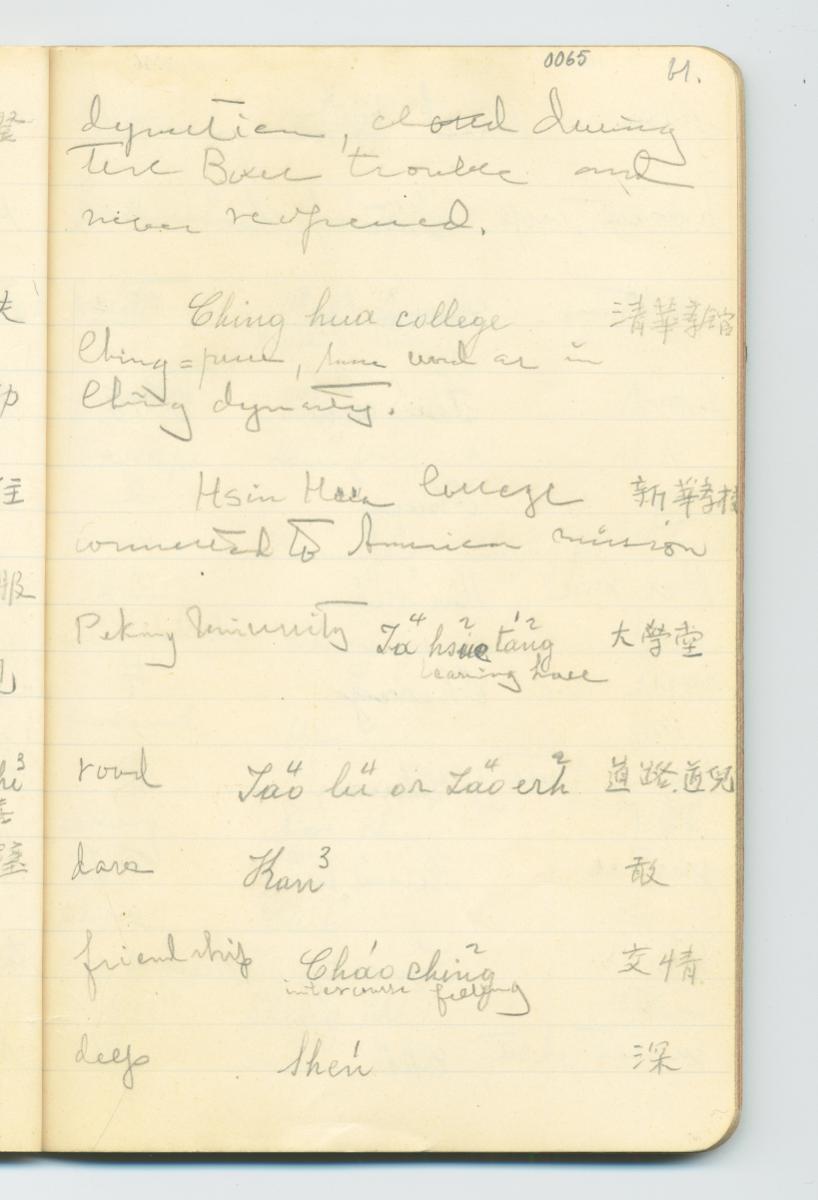 0065 61.
dynastien, closed during
the Boxer trouble and
never reopened.
Ching hua college 清華學館
Ching = pure, same word as in
Ching dynasty.
Hsin Hua College 新華學校
connected to American mission
Peking University Ta⁴ hsüe² tá'ng² 大學堂
learning hall
road Tao⁴ lu⁴ or Tao⁴ erh² 道路.道兒
dare Kan³ 敢
friendship Cháo ching² 交情
intercourse feeling
deep Shen' 深